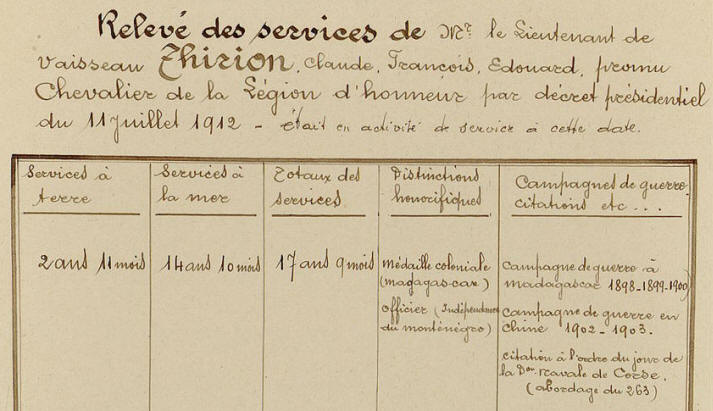 Relevé des services de Mr. le Lieutenant de
vaisseau Thirion, Claude, François, Edouard, promu
Chevalier de la Légion d'honneur par décret présidentiel
du 11 Juillet 1912 - était en activité de service à cette date.
Services à terre
Services à la mer
Totaux des services.
Distinctions honorifiques
Campagnes de guerre, citations etc ...
2 ans 11 mois
14 ans 10 mois
17 ans 9 mois
Médaille coloniale
(Magagascar)
Officier (Indépendance
du monténégro)
Campagne de guerre à
madagascar 1898-1899-1900)
Campagne de guerre en
Chine 1902-1903.
citation à l'ordre du jour de
la Don. navale de Corse.
(abordage du 263)